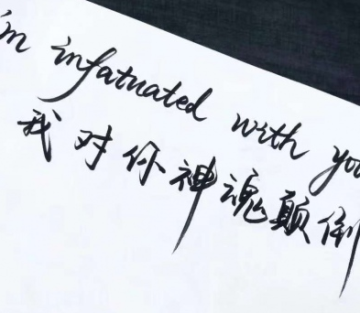 in infatuated with you
我对你神魂颠倒